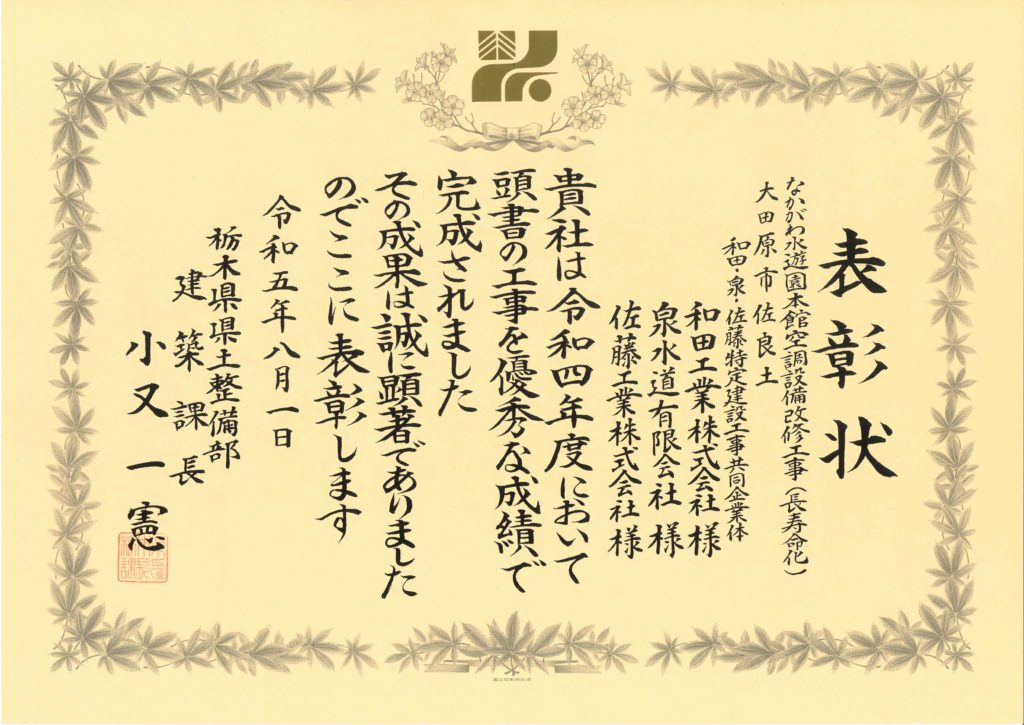 表彰状
なかがわ水遊園本館空調設備改修工事（長寿命化）
大田原市佐良土
和田・泉・佐藤特定建設工事共同企業体
和田工業株式会社 様
泉水道有限会社 様
佐藤工業株式会社 様
貴社は令和四年度において
頭書の工事を優秀な成績で
完成されました
その成果は誠に顕著でありました
のでここに表彰します
令和五年八月一日
栃木県県土整備部
建築課長
小又一憲